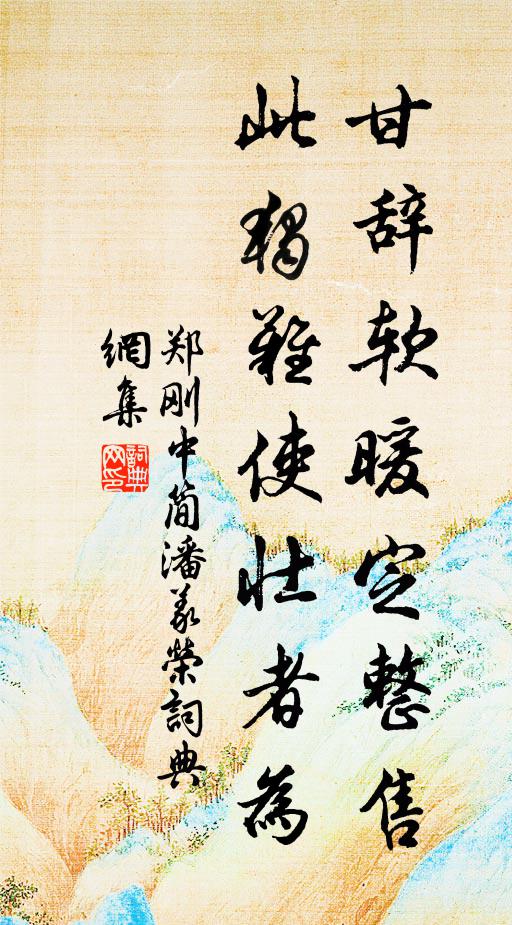 甘辞软暖定整售
此独難使壮者為
郑刚中简潘义荣詞典
網集
詞典
网印